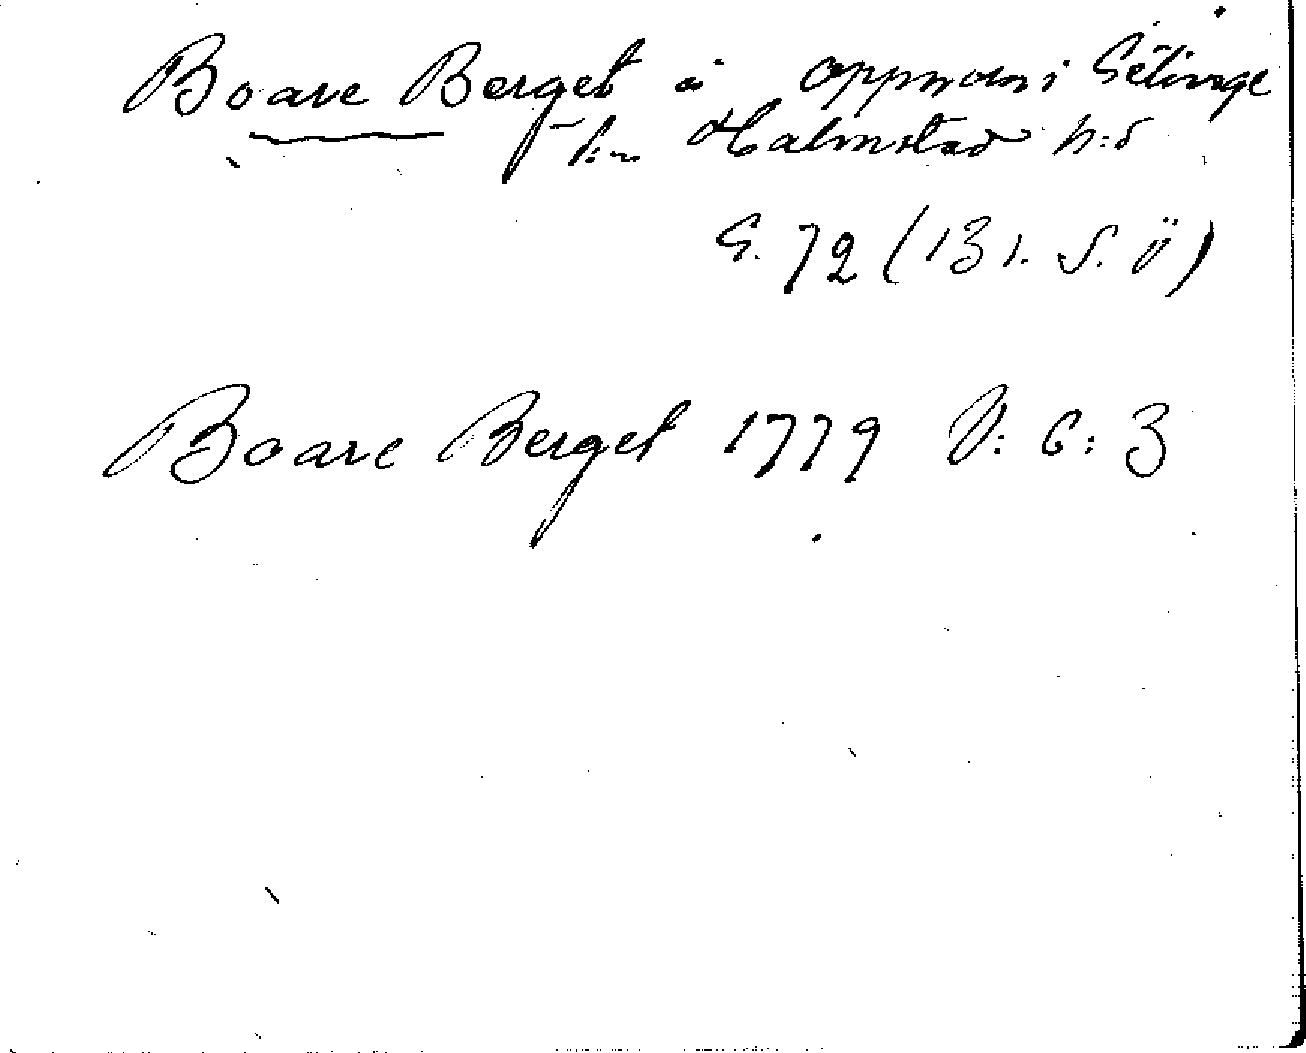 Boare Berget å oppmarn i Getinge
s:n Halmstad h:d
G. 72 (131. S. ö)
Boare Berget 1779 V: G: 3